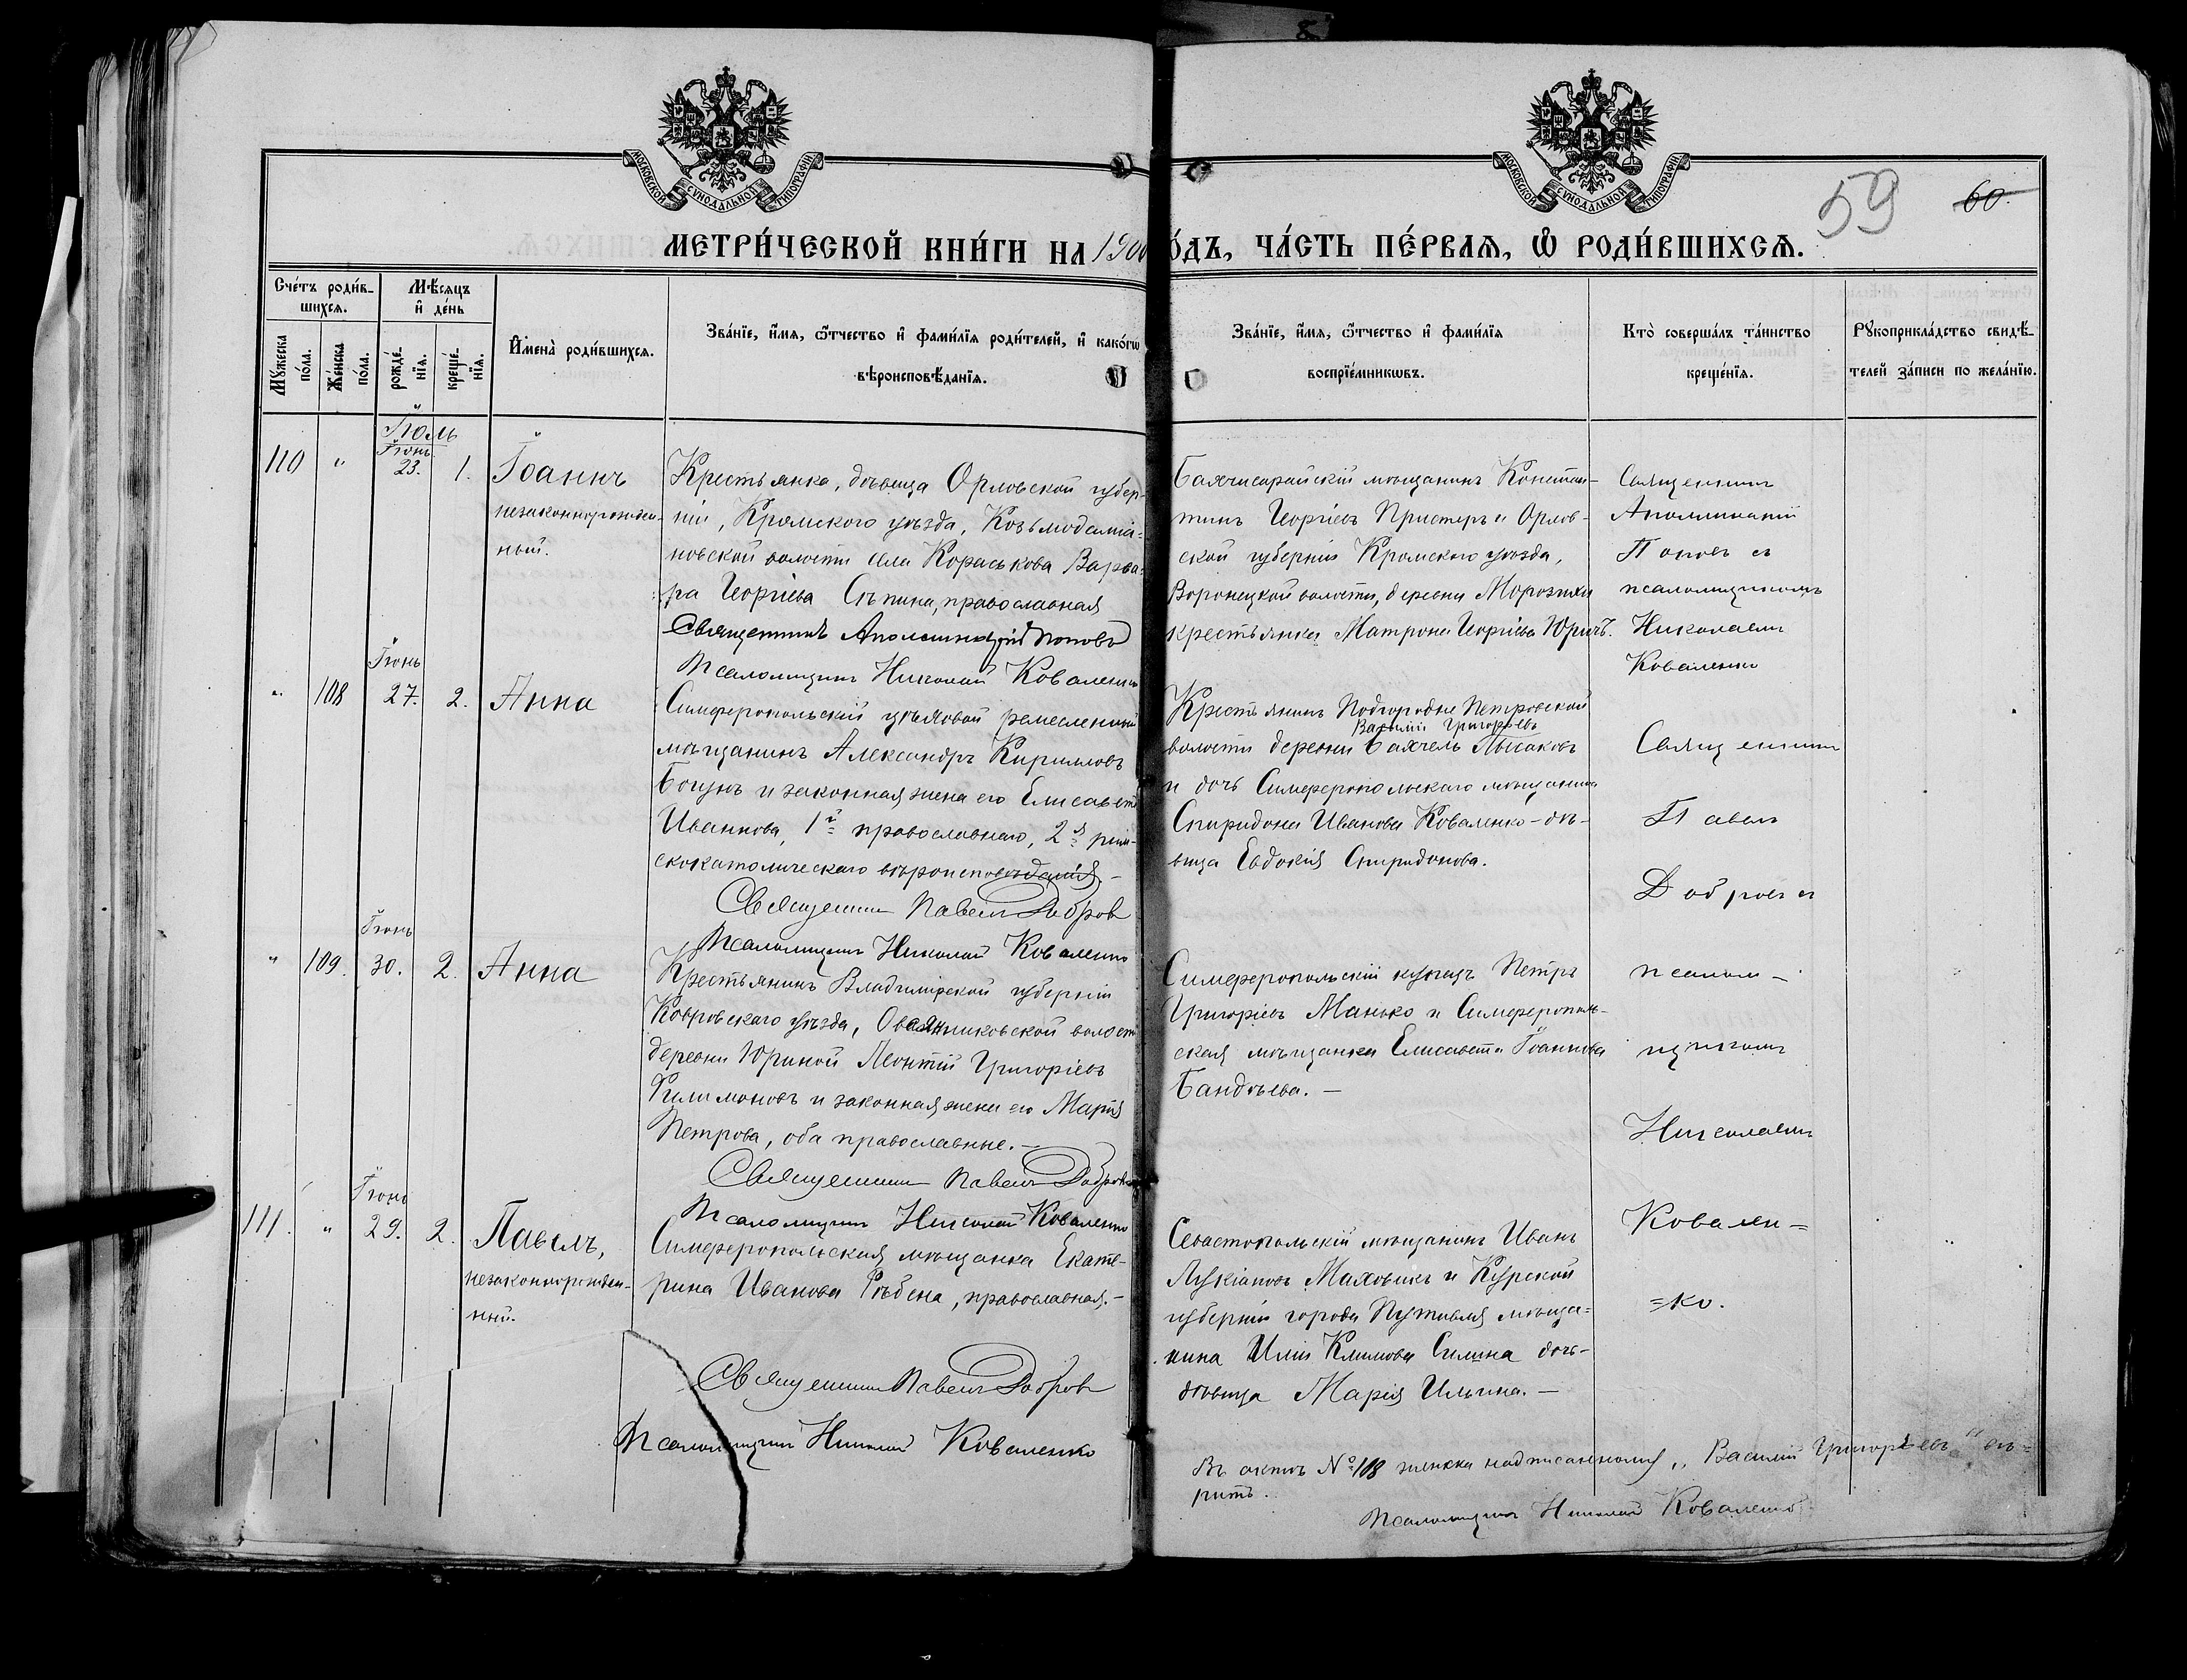 МОСКОВСКОЙ СѴНОДАЛЬНОЙ ТИПОГРАФІИ
МОСКОВСКОЙ СѴНОДАЛЬНОЙ ТИПОГРАФІИ
59 60
МЕТРИ́ЧЕСКОЙ КНИ́ГИ НА 1900
ÓДЪ, ЧА́СТЬ ПЕ́РВАѦ, Ѿ РОДИ́ВШИХСѦ.
Сче́тъ роди́в-
шихсѧ.
Мѣ́сѧцъ
и҆ де́нь
Мꙋ́жеска
по́ла.
Же́нска
по́ла.
рожде́-
нїѧ.
креще́-
нїѧ.
И҆мена̀ роди́вшихсѧ.
Зва́нїе, и҆́мѧ, ѻ҆́тчество и҆ фами́лїѧ роди́телей, и҆ како́гѡ
вѣроисповѣ́данїѧ.
Зва́нїе, и҆́мѧ, ѻ҆́тчество и҆ фами́лїѧ
воспрїе́мникѡвъ.
Кто̀ соверша́лъ та́инство
креще́нїѧ.
Рꙋкоприкла́дство свидѣ́-
телей за́писи по жела́нїю.
Іюль
Іюнь
110 " 23. 1. Іоаннъ
незаконнорожден-
ный.
Крестьянка, дѣвица Орловской губер-
ніи, Кромскаго уѣзда, Козьмодеміа-
новской волости села Короськова Варва-
ра Георгіева Слѣпина, православная
Священникъ Аполлинарій Поповъ
Псаломщикъ Николай Коваленко
Бахчисарайскій мѣщанинъ Констан-
тинъ Георгіевъ Пристеръ и Орлов-
ской губерніи Кромскаго уѣзда,
Воронецкой волости, деревни Морозихи
крестьянка Матрона Георгіева Юричъ.
Священникъ
Аполлинарій
Поповъ съ
псаломщикомъ
Николаемъ
Коваленко
Іюнь
" 108 27. 2. Анна
Симферопольскій цѣховой ремесленный
мѣщанинъ Александръ Кирилловъ
Богунъ и законная жена его Елисавета
Иваннова, 1й православнаго, 2я рим-
скокатолическаго вѣроисповѣданія. –
Священникъ Павелъ Добровъ
Псаломщикъ Николай Коваленко
Крестьянинъ Подгородне Петровской
Василій Григорьевъ
волости деревни Бахчель Лысаковъ
и дочь Симферопольскаго мѣщанина
Спиридона Иванова Коваленко – дѣ-
вица Евдокія Спиридонова.
Священникъ
Павелъ
Добровъ съ
Іюнь
" 109. 30. 2. Анна
Крестьянинъ Владимірской губерніи
Ковровскаго уѣзда, Овсянниковской волости
деревни Юриной Леонтій Григоріевъ
Филимоновъ и законная жена его Марія
Петрова, оба православные. –
Священникъ Павелъ Добровъ
Псаломщикъ Николай Коваленко
Симферопольскій купецъ Петръ
Григоріевъ Манько и Симферополь-
ская мѣщанка Елисавета Іоаннова
Бандѣева. –
псалом –
щикомъ
Николаемъ
Ковален=
=ко.
Іюнь
111. " 29. 2. Павелъ,
незаконнорожден-
ный.
Симферопольская мѣщанка Екате-
рина Иванова Рѣбена, православная. –
Священникъ Павелъ Добровъ
Псаломщикъ Николай Коваленко
Севастопольскій мѣщанинъ Иванъ
Лукіановъ Маховикъ и Курской
губерніи города Путивля мѣща=
нина Иліи Климова Силина дочь-
дѣвица Марія Ильина. –
Въ актѣ № 108 женска надписанному „Василій Григорьевъ" вѣ=
рить.
Псаломщикъ Николай Коваленко